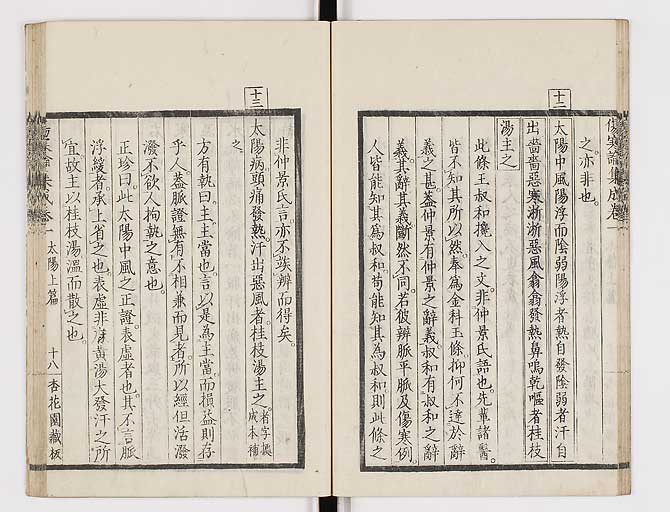 傷寒論集成卷一
之。亦非也。
十二
太陽中風陽浮而陰弱陽浮者熱自發陰弱者汗自
出嗇嗇惡寒淅淅惡風翕翕發熱鼻鳴乾嘔者桂枝
湯主之
此條王叔和攙入之文。非仲景氏語也。先輩諸醫。
皆不知其所以然。奉爲金科玉條。抑何不達於辭
義之甚。蓋仲景有仲景之辭義。叔和有叔和之辭
義。其辭其義。斷然不同。若彼辨脈平脈及傷寒例。
人皆能知其爲叔和。苟能知其爲叔和。則此條之
非仲景氏言。亦不竢辨而得矣。
十三
太陽病。頭痛發熱。汗出惡風者。桂枝湯主之。者字據成本補
之。
方有執曰。主。主當也。言以是爲主當。而損益則存
乎人。蓋脈證無有不相兼而見者。所以經但活潑
潑。不欲人拘執之意也。
正珍曰。此太陽中風之正證。表虛者也。其不言脈
浮緩者。承上省之也。表虛非麻黃湯大發汗之所
宜。故主以桂枝湯溫而散之也。
傷寒論集成卷一 太陽上篇 十八 杏花園藏板